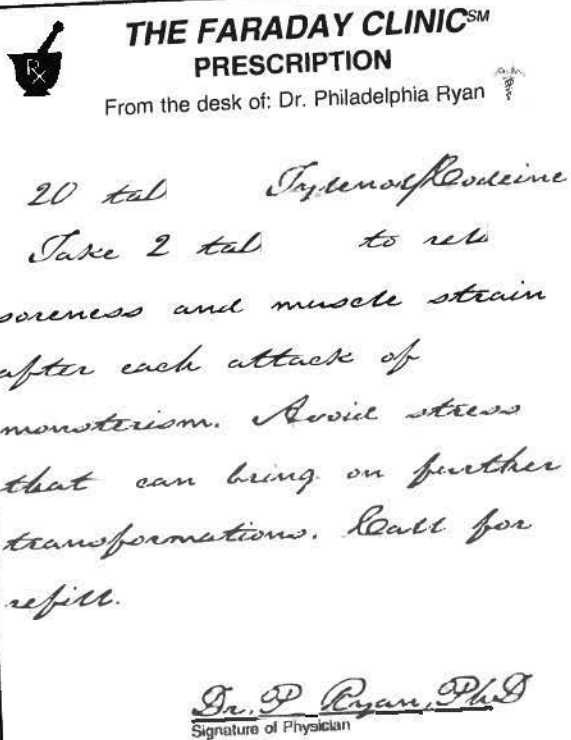 THE FARADAY CLINIC℠
PRESCRIPTION
From the desk of: Dr. Philadelphia Ryan
Rx
20 tab Tylenol/Codeine
Take 2 tab to
soreness and muscle strain
after each attack of
monsterism. Avoid stress
that can bring on further
transformations. Call for
refill.
Dr. P Ryan, PhD
Signature of Physician